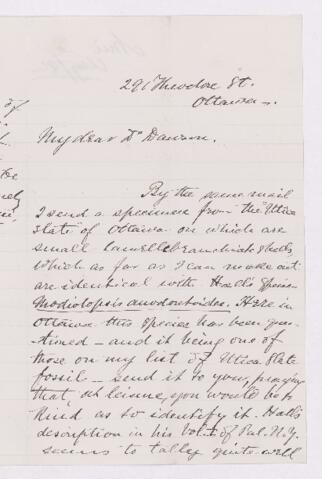 291 Theodore St.
Ottawa.
My dear Dr Dawson.
By the same mail
I send a specimen from the "Utica
slate" of Ottawa on which are
small lamellibranchiate shells,
which as far as I can make out
are identical with Hall's species
Modiolopsis anodontoides. Here in
Ottawa this species has been ques-
tioned - and it being one of
those on my list of Utica Slate
fossils - send it to you, praying
that at leisure, you would be so
kind as to identify it. Hall's
description in his Vol. I of Pal. N.Y.
seems to tally quite well
of